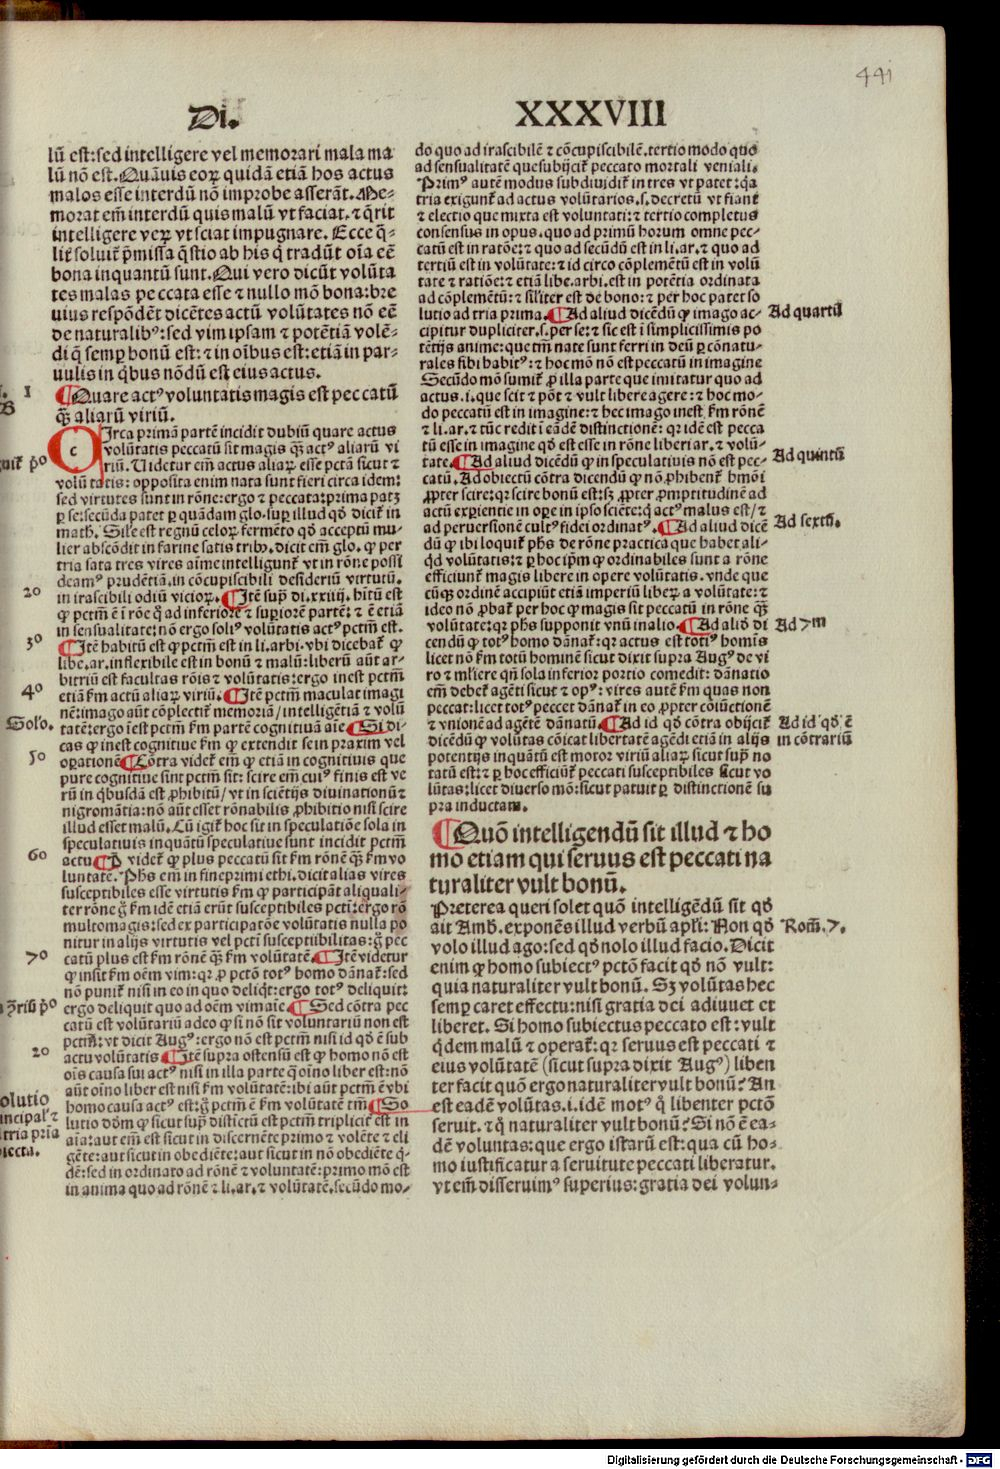 441
Di. XXXVIII
lū est:sed intelligere vel memorari mala ma
lū nō est. Quāuis eoꝝ quidā etiā hos actus
malos esse interdū nō improbe asserāt. Me-
morat em̄ interdū quis malū vt faciat. ⁊ q̄rit
intelligere veꝝ vt sciat impugnare. Ecce q̄-
lit̄ soluit̄ p̄missa q̄stio ab his q̄ tradūt oīa eē
bona inquantū sunt. Qui vero dicūt volūta
tes malas peccata esse ⁊ nullo mō bona: bre
uius respōdēt dicētes actū volūtates nō eē
de naturalibꝰ: sed vim ipsam ⁊ potētiā volē-
di q̄ semꝑ bonū est: ⁊ in oībus est: etiā in par-
uulis in qͥbus nōdū est eius actus.
1
¶Quare actꝰ voluntatis magis est peccatū
qꝫ aliarū viriū.
Circa primā partē incidit dubiū quare actus
volūtatis peccatū sit magis qꝫ actꝰ aliarū vi
riū. Videtur em̄ actus aliaꝝ esse pctā sicut ⁊
volūtatis: opposita enim nata sunt fieri circa idem:
sed virtutes sunt in rōne: ergo ⁊ peccata: prima patꝫ
ꝑ se: secūda patet ꝑ quādam glo. suꝑ illud qd̄ dicit̄ in
math. Sile est regnū celoꝝ fermēto qd̄ acceptū mu-
lier abscōdit in farine satis tribꝰ. dicit em̄ glo. ꝙ per
tria sata tres vires aīme intelligunt̄ vt in rōne possi
deamꝰ prudētiā. in cōcupiscibili desideriū virtutū.
20 in irascibili odiū vicioꝝ. ¶Itē supͣ di. xxiiij. hitū est
ꝙ pctm̄ ē ī rōe qͦ ad inferiorē ⁊ supiorē partē: ⁊ ē etiā
in sensualitate: nō ergo soliꝰ volūtatis actꝰ pctm̄ est.
30 ¶Itē habitū est ꝙ pctm̄ est in li. arbi. vbi dicebat̄ ꝙ
libe. ar. inflexibile est in bonū ⁊ malū: liberū aūt ar-
bitriū est facultas rōis ⁊ volūtatis: ergo inest pctm̄
40 etiā fm̄ actū aliaꝝ viriū. ¶Itē pctm̄ maculat imagi
nē: imago aūt cōplectit̄ memoriā/ intelligētiā ⁊ volū
Solo. tatē: ergo ī est pctm̄ fm̄ partē cognitiuā aīe ¶Si di-
cas ꝙ inest cognitiue fm̄ ꝙ extendit se in praxim vel
50 operationē ¶Cōtra videt̄ em̄ ꝙ etiā in cognitiuis que
pure cognitiue sint pctm̄ sit: scire em̄ cuiꝰ finis est ve
rū in qͥbusdā est ꝓhibitū/ vt in sciētijs diuinationū ⁊
nigromātia: nō aūt esset rōnabilis ꝓhibitio nisi scire
illud esset malū. Cū igit̄ hoc sit in speculatiōe sola in
speculatiuis inquātū speculatiue sunt incidit pctm̄
60 actu ¶P videt̄ ꝙ plus peccatū sit fm̄ rōnē qꝫ fm̄ vo
luntatē. Phs em̄ in fine primi ethi. dicit alias vires
susceptibiles esse virtutis fm̄ ꝙ participāt aliquali-
ter rōne: g̊ fm̄ idē etiā erūt susceptibiles pcti: ergo rō
multomagis: sed ex participatōe volūtatis nulla po
nitur in alijs virtutis vel pcti susceptibilitas: g̊ pec
70 catū plus est fm̄ rōnē qꝫ fm̄ volūtatē. ¶Itē videtur
ꝙ insit fm̄ oēm vim: qr ꝓ pctō totꝰ homo dānat̄: sed
nō punit̄ nisi in eo in quo deliqͥt: ergo totꝰ deliquit:
ergo deliquit quo ad oēm vim aīe. ¶Sed cōtra pec
catū est volūtariū adeo ꝙ si nō sit voluntariū non est
pctm̄: vt dicit Augꝰ: ergo nō est pctm̄ nisi id qd̄ ē sub
20 actu volūtatis ¶Itē supra ostensū est ꝙ homo nō est
oīs causa sui actꝰ nisi in illa parte q̄ oīno liber est: nō
olutio aūt oīno liber est nisi fm̄ volūtatē: ibi aūt pctm̄ ē vbi
incipal̄ ⁊ homo causa actꝰ est: g̊ pctm̄ ē fm̄ volūtatē tm̄ ¶So
tria pria lutio dōm ꝙ sicut supͣ distīctū est pctm̄ triplicit̄ est in
iecta. aīa: aut em̄ est sicut in discernēte primo ⁊ volēte ⁊ eli
gēte: aut sicut in obediēte: aut sicut in nō obediēte qͥ-
dē: sed in ordinato ad rōnē ⁊ voluntatē: primo mō est
in anima quo ad rōnē ⁊ li. ar. ⁊ volūtatē. secūdo mo-
do quo ad irascibilē ⁊ cōcupiscibilē. tertio modo quo
ad sensualitatē que subijcit̄ peccato mortali veniali.
Primꝰ autē modus subdiuidit̄ in tres vt patet: qͥa
tria exigunt̄ ad actus volūtarios. s. decretū vt fiant
⁊ electio que mixta est voluntati: ⁊ tertio completus
consensus in opus. quo ad primū horum omne pec-
catū est in ratōe: ⁊ quo ad secūdū est in li. ar. ⁊ quo ad
tertiū est in volūtate: ⁊ id circo cōplementū est in volū
tate ⁊ ratiōe: ⁊ etiā libe. arbi. est in potētia ordinata
ad cōplemētū: ⁊ silīter est de bono: ⁊ per hoc patet so
lutio ad tria prima. ¶Ad aliud dicēdū ꝙ imago ac- Ad quartū
cipitur dupliciter. s. per se: ⁊ sic est ī simplicissimis po
tētijs anime: que tm̄ nate sunt ferri in deū ꝑ cōnatu-
rales sibi habitꝰ: ⁊ hoc mō nō est peccatū in imagine
Secūdo mō sumit̄ ꝓ illa parte que imitatur quo ad
actus. i. que scit ⁊ pōt ⁊ vult libere agere: ⁊ hoc mo-
do peccatū est in imagine: ⁊ hec imago inest fm̄ rōnē
⁊ li. ar. ⁊ tūc redit ī eādē distinctionē: qr idē est pecca
tū esse in imagine qd̄ est esse in rōne liberi ar. ⁊ volū-
tate. ¶Ad aliud dicēdū ꝙ in speculatiuis nō est pec- Ad quintū
catū. Ad obiectū cōtra dicendū ꝙ nō ꝓhibent̄ hmōi
ꝓpter scire: qr scire bonū est: sꝫ ꝓpter ꝓmptitudinē ad
actū exꝑientie in oꝑe in ipso sciēte: qͥ actꝰ malus est/ ⁊
ad peruersionē cultꝰ fidei ordinatꝰ. ¶Ad aliud dicē Ad sextū.
dū ꝙ ibi loquit̄ phs de rōne practica que habet ali-
qͥd volūtatis: ⁊ ꝑ hoc ip̄m ꝙ ordinabiles sunt a rōne
efficiunt̄ magis libere in opere volūtatis. vnde que
cūqꝫ ordinē accipiūt etiā imperiū libeꝝ a volūtate: ⁊
ideo nō ꝓbat̄ per hoc ꝙ magis sit peccatū in rōne qꝫ
volūtate: qr phs supponit vnū in alio. ¶Ad aliō di Ad 7m
cendū ꝙ totꝰ homo dānat̄: qr actus est totiꝰ homīs
licet nō fm̄ totū hominē sicut dixit supra Augꝰ de vi
ro ⁊ mliere qn̄ sola inferior portio comedit: dānatio
em̄ debet̄ agēti sicut ⁊ opꝰ: vires autē fm̄ quas non
peccat: licet totꝰ peccet dānat̄ in eo ꝓpter cōiūctionē
⁊ vnionē ad agētē dānatū. ¶Ad id qd̄ cōtra obijcit̄ Ad id qd̄ ē
dicēdū ꝙ volūtas cōicat libertatē agēdi etiā in alijs in cōtrariū
potentijs inquātū est motor viriū aliaꝝ sicut supͣ no
tatū est: ⁊ ꝑ hoc efficiūt̄ peccati susceptibiles sicut vo
lūtas: licet diuerso mō: sicut patuit ꝑ distinctionē su
pra inductam.
¶Quō intelligendū sit illud ⁊ ho
mo etiam qui seruus est peccati na
turaliter vult bonū.
Preterea queri solet quō intelligēdū sit qd̄
ait Amb. exponēs illud verbū apli: Non qd̄ Rom. 7.
volo illud ago: sed qd̄ nolo illud facio. Dicit
enim ꝙ homo subiectꝰ pctō facit qd̄ nō vult:
quia naturaliter vult bonū. Sꝫ volūtas hec
semꝑ caret effectu: nisi gratia dei adiuuet et
liberet. Si homo subiectus peccato est: vult
qͥdem malū ⁊ operat̄: qr seruus est peccati ⁊
eius volūtatē (sicut supra dixit Augꝰ) liben
ter facit quō ergo naturaliter vult bonū? An
est eadē volūtas. i. idē motꝰ qͦ libenter pctō
seruit. ⁊ qͦ naturaliter vult bonū? Si nō ē ea-
dē voluntas: que ergo istarū est: qua cū ho-
mo iustificatur a seruitute peccati liberatur.
vt em̄ disseruimꝰ superius: gratia dei volun-
Digitalisierung gefördert durch die Deutsche Forschungsgemeinschaft - DFG